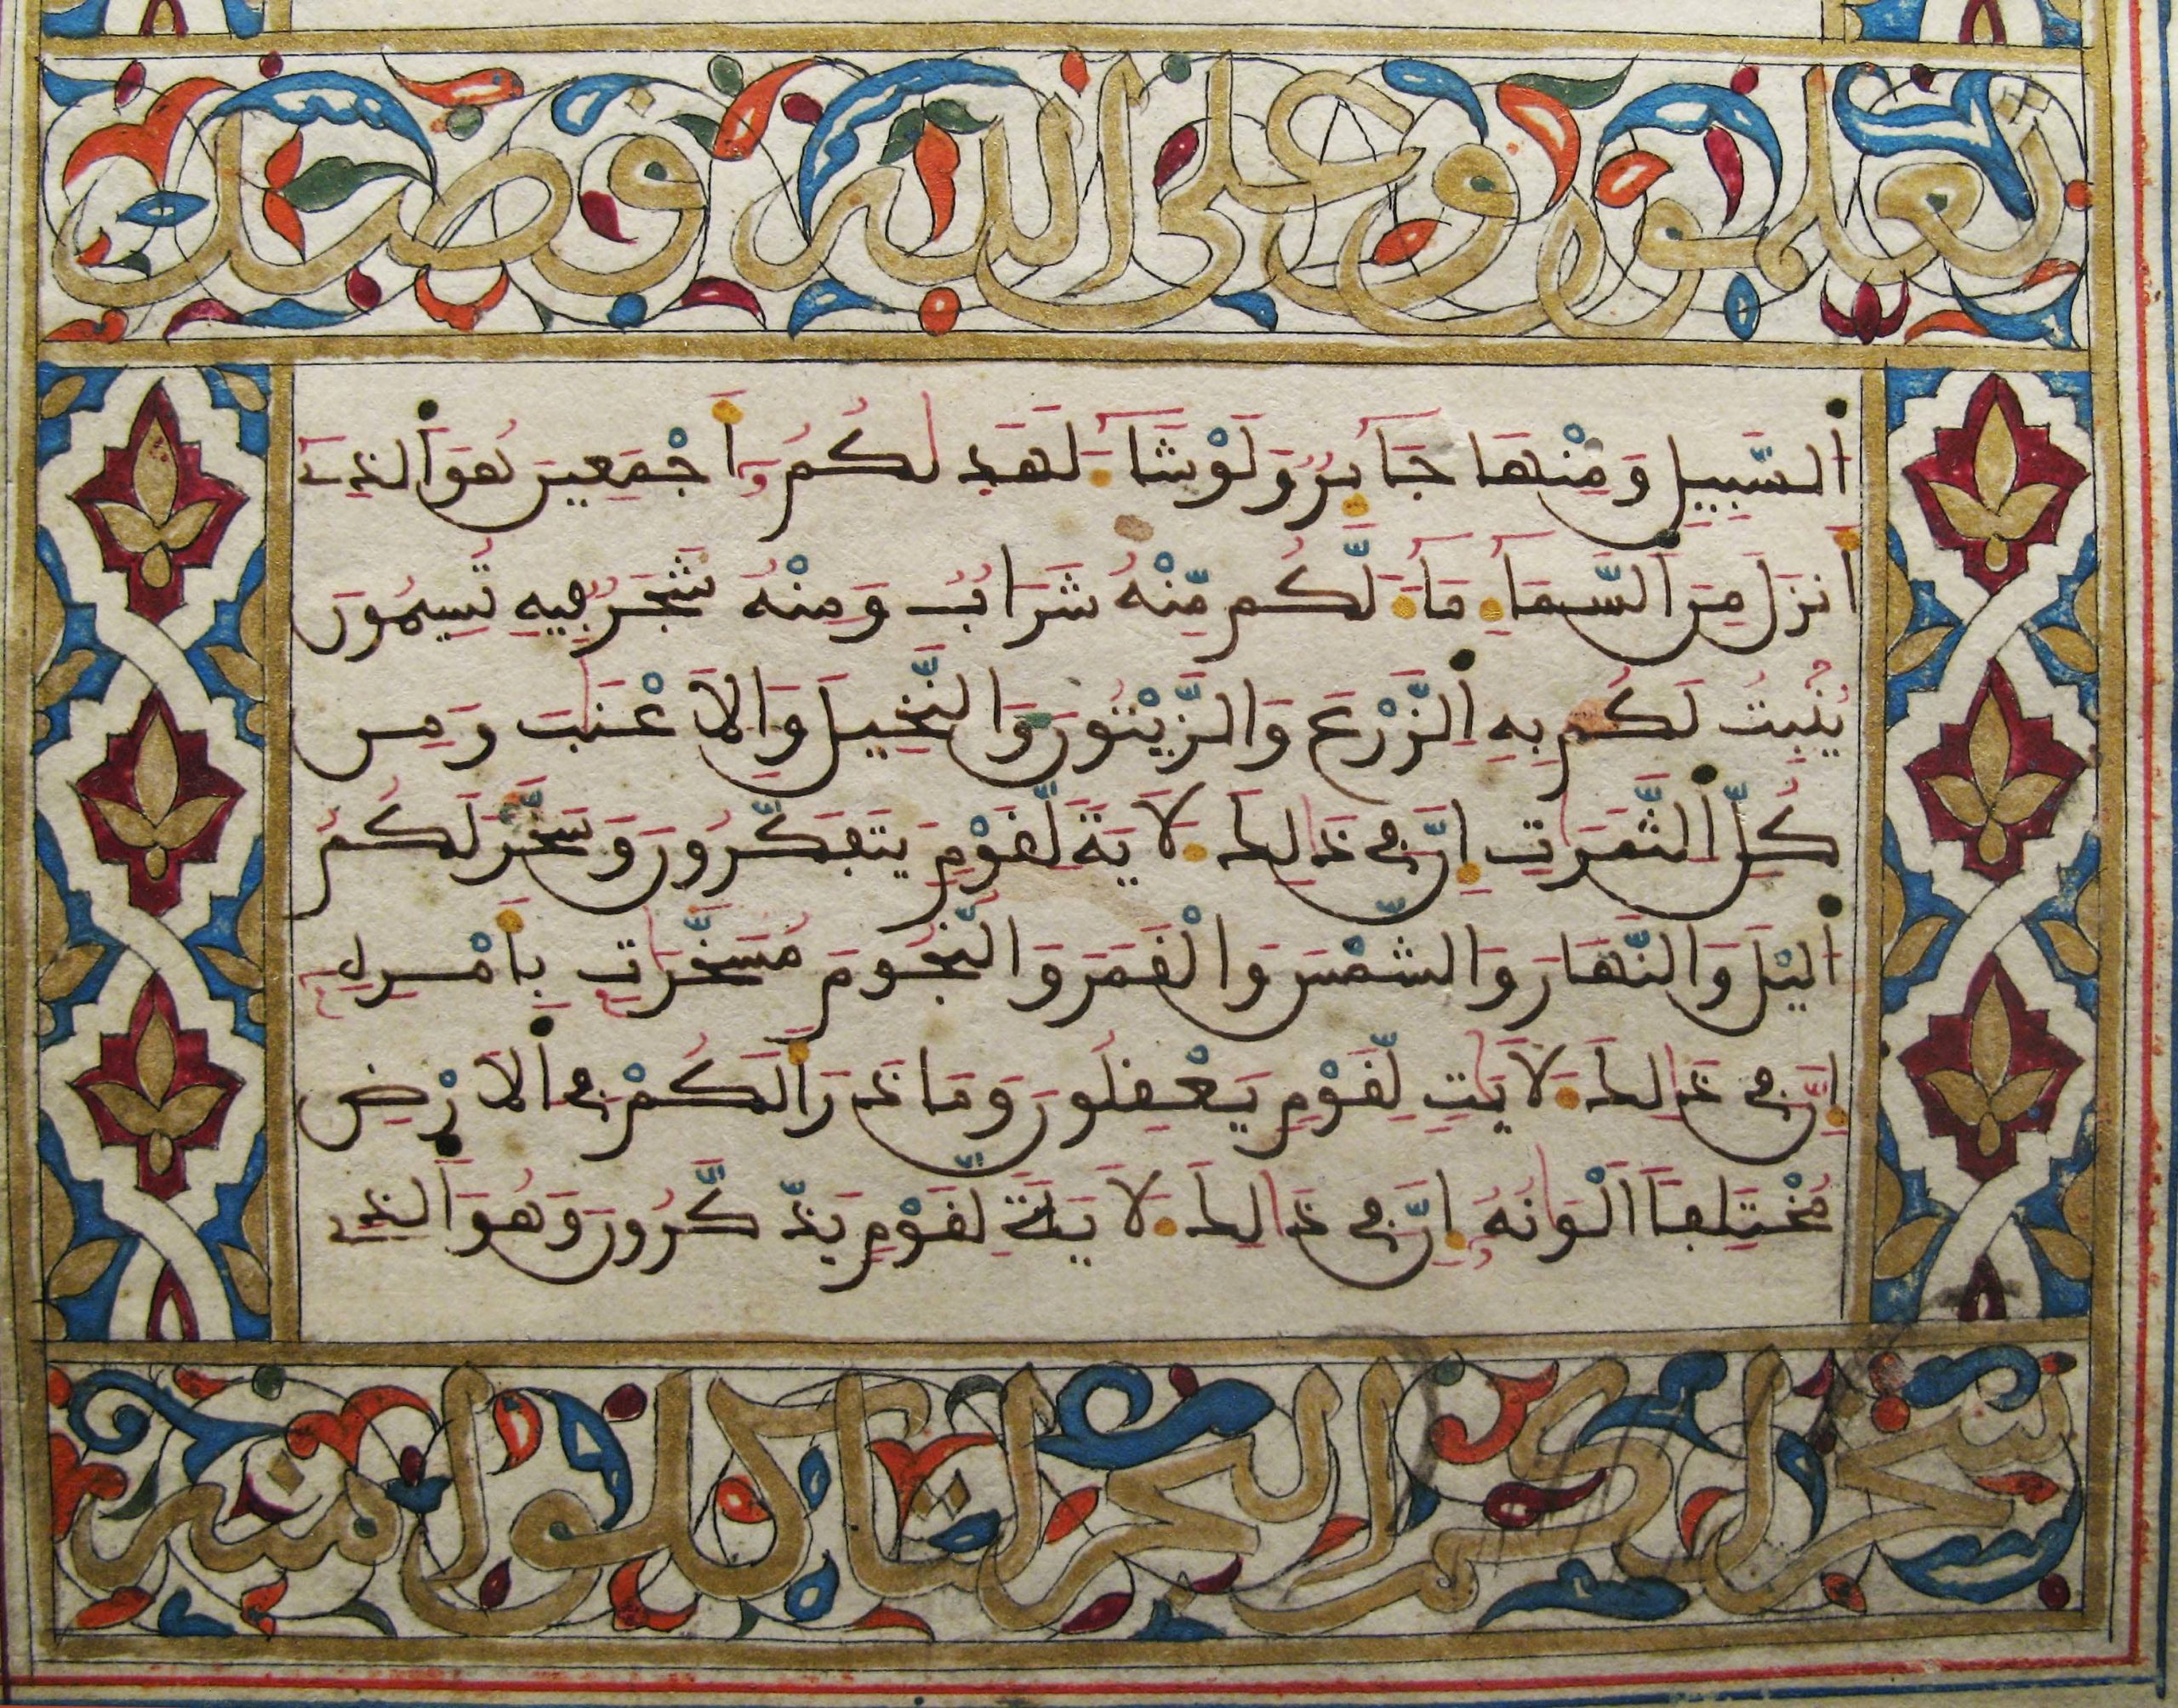 تعلمون وعلى الله قصد
اَ۬لسَّبِيلِ وَمِنْهَا جَآئِرٌ وَلَوْ شَآءَ لَهَد۪يٰكُمُۥٓ أَجْمَعِينَ هُوَ اَ۬لذِےٓ
أَنزَلَ مِنَ اَ۬لسَّمَآءِ مَآءً لَّكُم مِّنْهُ شَرَابٌ وَمِنْهُ شَجَرٌ فِيهِ تُسِيمُونَ
يُنۢبِتُ لَكُم بِهِ اِ۬لزَّرْعَ وَالزَّيْتُونَ وَالنَّخِيلَ وَالَاعْنَٰبَ وَمِن
كُلِّ اِ۬لثَّمَرَٰتِ إِنَّ فِي ذَٰلِكَ لَأٓيَةً لِّقَوْمٍ يَتَفَكَّرُونَ وَسَخَّرَ لَكُمُ
اُ۬ليْلَ وَالنَّهَارَ وَالشَّمْسَ وَالْقَمَرَ وَالنُّجُومَ مُسَخَّرَٰتِۢ بِأَمْرِهِۦٓ
إِنَّ فِي ذَٰلِكَ لَأٓيَٰتٍ لِّقَوْمٍ يَعْقِلُونَ وَمَا ذَرَأَ لَكُمْ فِي اِ۬لَارْضِ
مُخْتَلِفاً اَلْوَٰنُهُۥٓ إِنَّ فِي ذَٰلِكَ لَأٓيَةً لِّقَوْمٍ يَذَّكَّرُونَ وَهُوَ اَ۬لذِے
سخر لكم البحر لتاكلوا منه